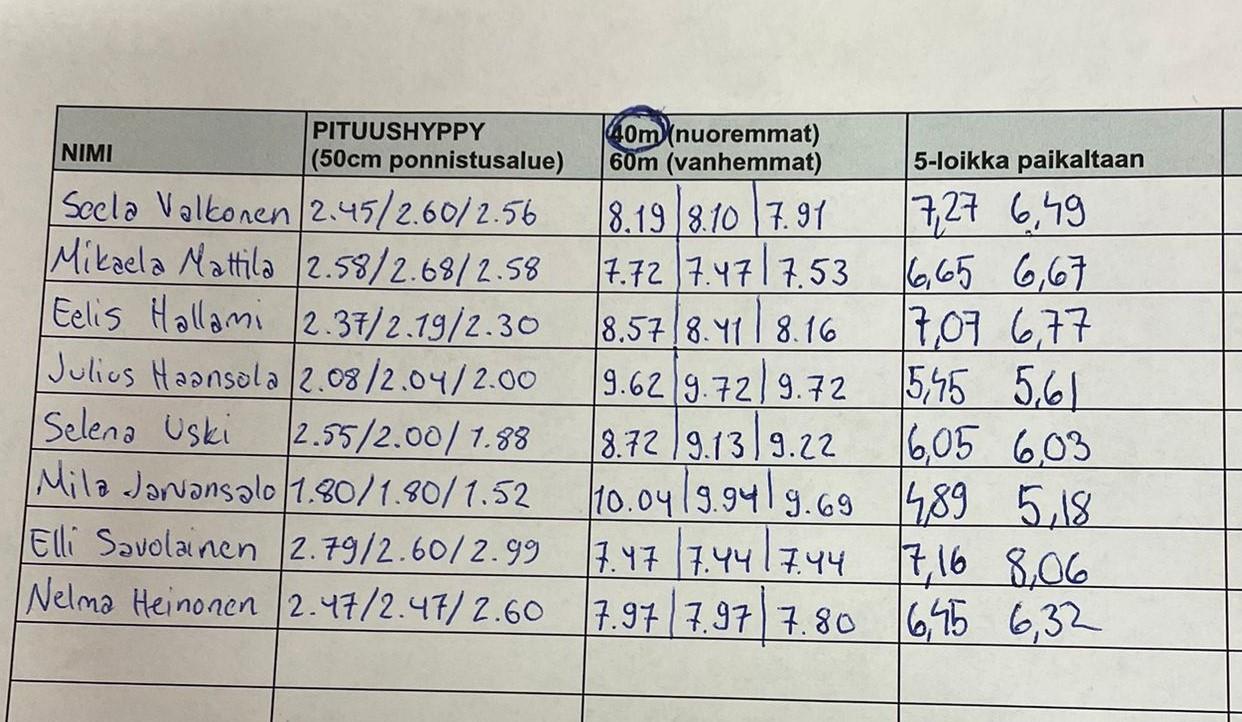 NIMI PITUUSHYPPY (50cm ponnistusalue) 40m (nuoremmat) 60m (vanhemmat) 5-loikka paikaltaan
Seela Valkonen 2.45/2.60/2.56 8.19|8.10|7.91 7,27 6,49
Mikaela Mattila 2.58/2.68/2.58 7.72|7.47|7.53 6,65 6,67
Eelis Hallami 2.37/2.19/2.30 8.57|8.41|8.16 7,07 6,77
Julius Haansola 2.08/2.04/2.00 9.62|9.72|9.72 5,45 5,61
Selena Uski 2.55/2.00/1.88 8.72|9.13|9.22 6,05 6,03
Mila Jarvansalo 1.80/1.80/1.52 10.04|9.94|9.69 4,89 5,18
Elli Savolainen 2.79/2.60/2.99 7.47|7.44|7.44 7,16 8,06
Nelma Heinonen 2.47/2.47/2.60 7.97|7.97|7.80 6,45 6,32